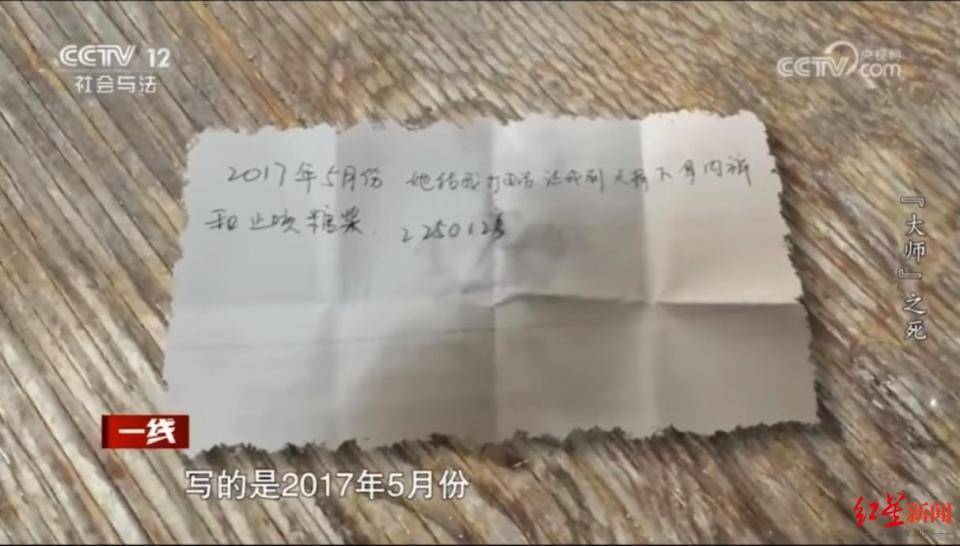 CCTV 12
社会与法
央视网
CCTV com
2017年5月份 她给我打电话 让我到天桥下拿内裤
和止咳糖浆. 225012
『大师』之死
一线
写的是2017年5月份
红星新闻